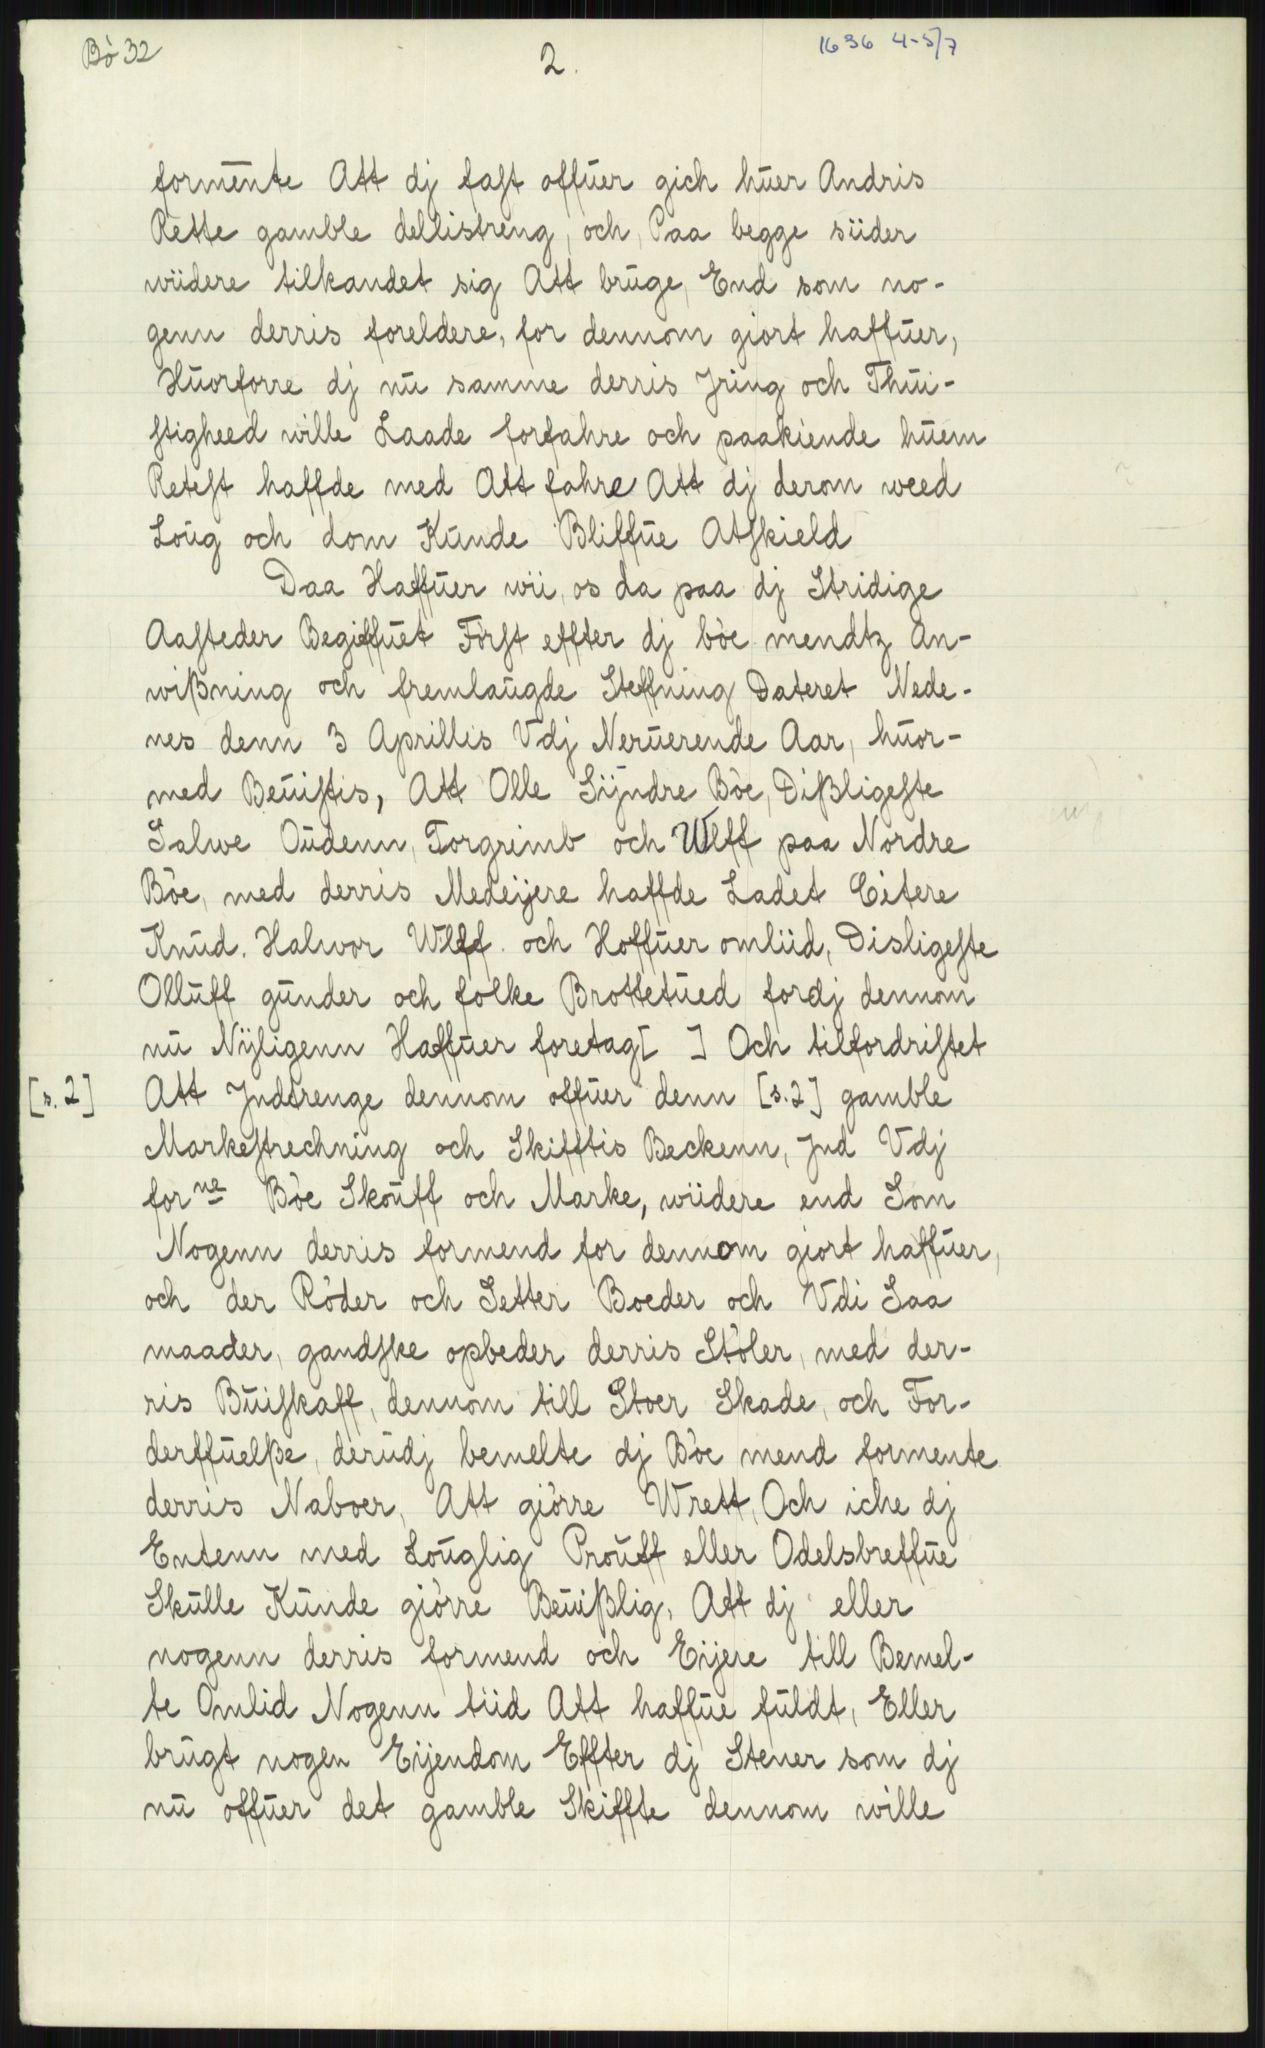 Bò 32
2.
1636 4-5/7
formēnte Att dj fast offūer gich hūer Andris
Rette gamble dellistreng, och, Paa begge siider
wiidere tilkandet sig Att brūge, End som no-
genn derris foreldere, for dennom giort haffūer,
Hūorforre dj nū samme derris Jring och Thūi-
stigheed wille Laade forfahre och paakiende hūem
Retest haffde med Att fahre Att dj derom weed
Loūg och dom Kūnde Bliffūe Atskield
Daa Haffūer wii, os da paa dj Stridige
Aasteder Begiffūet Fòrst effter dj bòe mendtz An-
wißning och fremlaūgde Steffning Dateret Nede-
nes denn 3 Aprillis Vdj Nerūerende Aar, hūor-
med Beūistis, Att Olle Sÿndre Bòe, Dißligeste
Salwe Oūdenn, Torgrimb och Wlff paa Nordre
Bòe, med derris Medeijere haffde Ladet Citere
Knūd. Halvor Wlff. och Hoffūer omliid, Disligeste
Ollūff gūnder och folke Brottetūed fordj dennom
nū Nÿligenn Haffūer foretag[ ] Och tilfordristet
[s. 2] Att Jndtrenge dennom offūer denn [s. 2] gamble
Markestrechning och Skifftis Beckenn, Jnd Vdj
for<sup>ne</sup> Bòe Skoūff och Marke, wiidere end Som
Nogenn derris formend for dennom giort haffūer,
och der Ròder och Setter Boeder och Vdi Saa
maader, gandske opbeder derris Stòler, med der-
ris Būiskaff, dennom till Stoer Skade, och For-
derffūelße, derūdj bemelte dj Bòe mend formente
derris Naboer, Att giòrre Wrett, Och iche dj
Entenn med Loūglig Proūff eller Odelsbreffūe
Skūlle Kūnde giòrre Beūißlig, Att dj eller
nogenn derris formend och Eijere till Bemel-
te Omlid Nogenn tiid Att haffūe fūldt, Eller
brūgt nogen Eijendom Effter dj Stener som dj
nū offūer det gamble Skiffte dennom wille